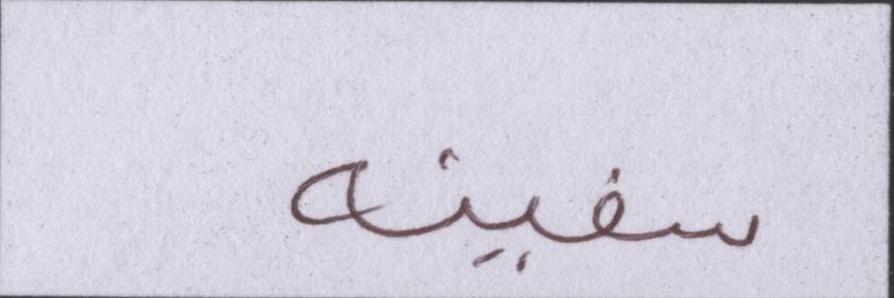 سفينه